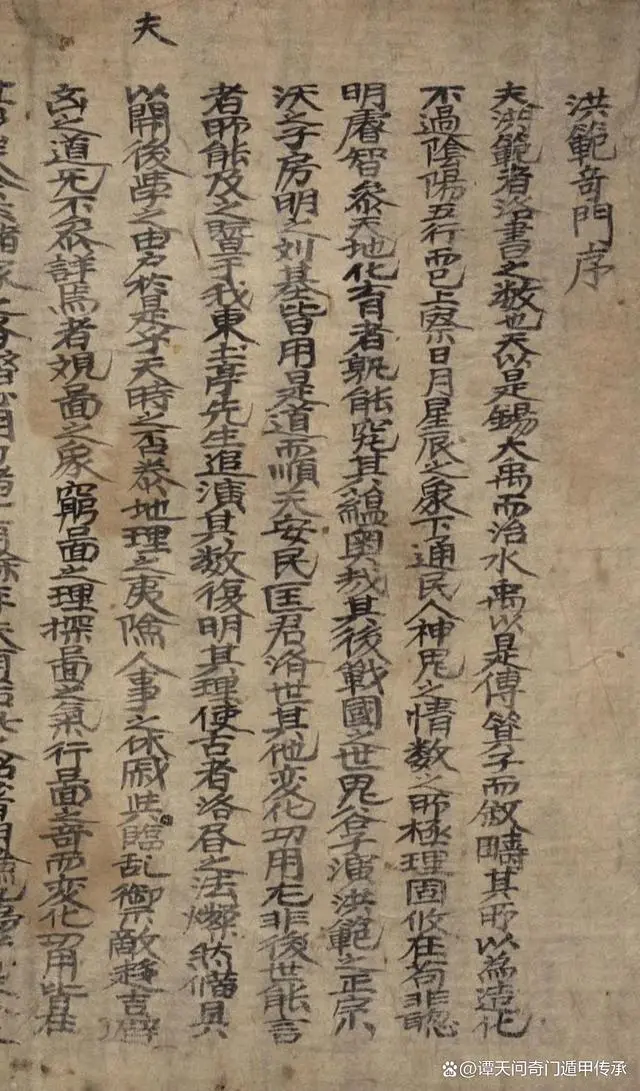 夫
洪範奇門序
夫洪範者洛書之数也天以是錫大禹而治水禹以是傳箕子而叙疇其所以為造化
不過陰陽五行而已上察日月星辰之象下通民人神鬼之情数之所極理固攸在苟非聡
明睿智参天地化育者孰能究其蘊奥哉其後戰國之世鬼谷子演洪範之正宗
之子房明之刘基皆用是道而順天安民匡君治世其他変化功用尤非後世能言
者所能及之曁于我東土亭先生追演其数復明其理使古者洛書之法燦然備具
以開後學之由户於是乎天時之否泰地理之夷險人事之休戚與臨乱御敵趍吉
凶之道无不詳焉者觀啚之象窮啚之理探啚之氣行啚之奇而変化功用皆在
@谭天问奇门遁甲传承